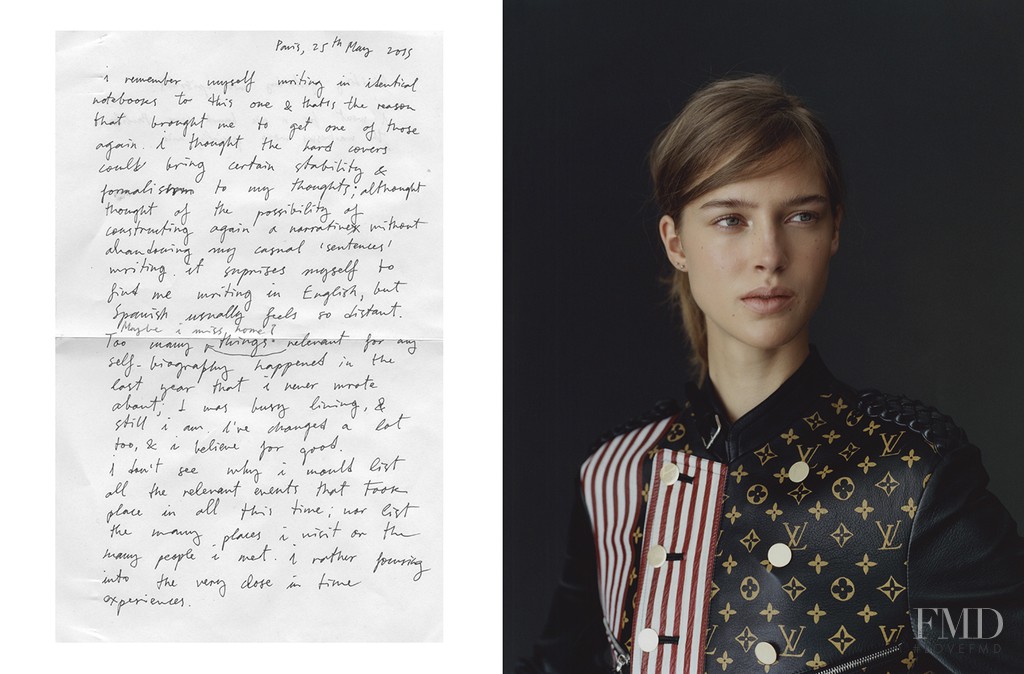 Paris, 25th May 2015
i remember myself writing in identical
notebooks to this one & thats the reason
that brought me to get one of those
again. i thought the hard covers
could bring certain stability &
formalism to my thoughts; althought
thought of the possibility of
constructing again a narrative without
abandoning my casual 'sentences'
writing. it surprises myself to
find me writing in English, but
Spanish usually feels so distant.
Maybe i miss home?
Too many things relevant for any
self-biography happened in the
last year that i never wrote
about; I was busy living, &
still i am. I've changed a lot
too, & i believe for good.
I don't see why i would list
all the relevant events that took
place in all this time; nor list
the many places i visit or the
many people i met. i rather focusing
into the very close in time
experiences.
LV
FMD
#ILOVEFMD